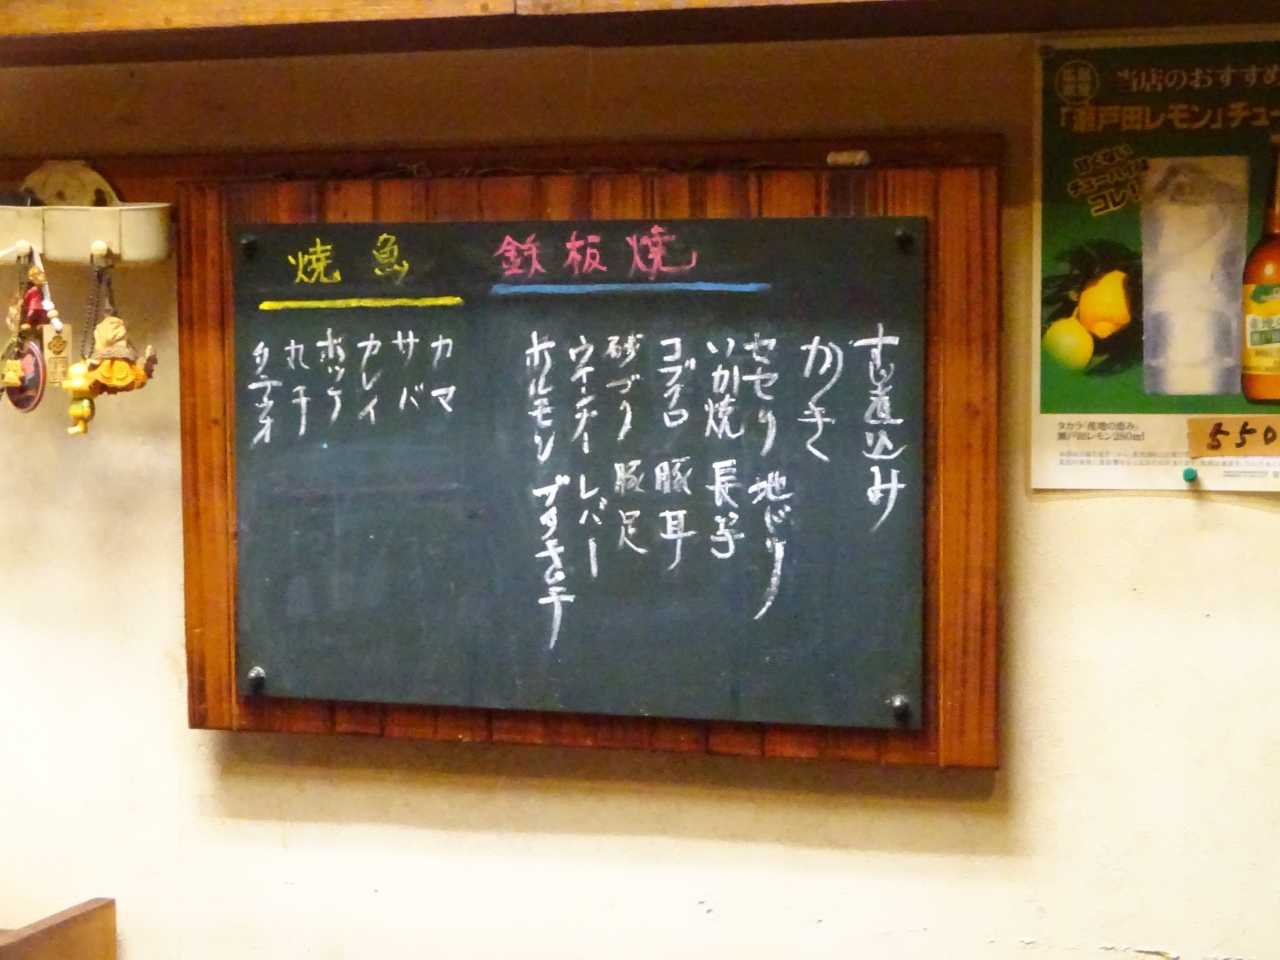 鉄板焼
すじ煮込み
セセリ 地どり
いか焼 長芋
コブクロ 豚耳
砂づり 豚足
ウインナー レバー
ホルモン ブタキムチ
焼魚
カマ
サバ
カレイ
ホッケ
丸干
当店のおすすめ
「瀬戸田レモン」チュー
甘くない
チューハイは
コレ!
タカラ「産地の恵み」
瀬戸田レモン280ml
550